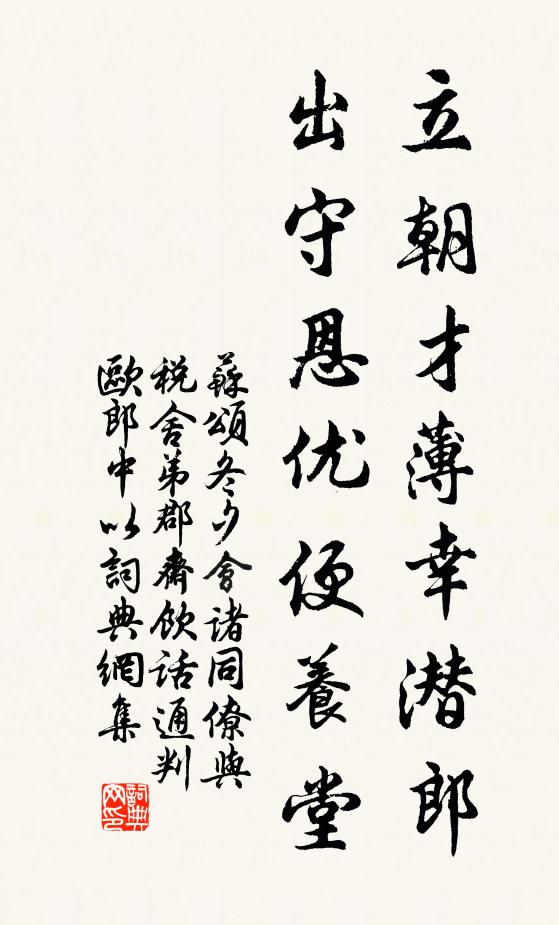 立朝才薄幸潜郎
出守恩优便養堂
蘇頌冬夕會諸同僚與
税舍弟郡齋飲話通判
歐郎中以詞典網集
詞典网印